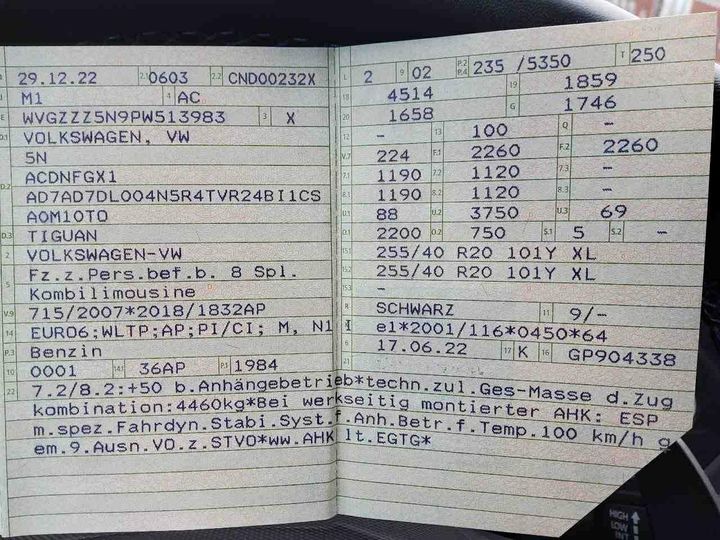 B 29.12.22 2.1 0603 2.2 CND00232X
J M1 4 AC
E WVGZZZ5N9PW513983 3 X
D.1 VOLKSWAGEN, VW
5N
D.2 ACDNFGX1
AD7AD7DL004N5R4TVR24BI1CS
AOM10TO
D.3 TIGUAN
2 VOLKSWAGEN-VW
5 Fz.z.Pers.bef.b. 8 Spl.
Kombilimousine
V.9 715/2007*2018/1832AP
14 EURO6;WLTP;AP;PI/CI; M, N1 I
P.3 Benzin
10 0001 14.1 36AP P.1 1984
L 2 9 02 P.2 P.4 235 /5350 T 250
18 4514 19 1859
20 1658 G 1746
12 - 13 100 Q -
V.7 224 F.1 2260 F.2 2260
7.1 1190 7.2 1120 7.3 -
8.1 1190 8.2 1120 8.3 -
U.1 88 U.2 3750 U.3 69
O.1 2200 O.2 750 S.1 5 S.2 -
15.1 255/40 R20 101Y XL
15.2 255/40 R20 101Y XL
15.3 -
R SCHWARZ 11 9/-
K e1*2001/116*0450*64
6 17.06.22 17 K 16 GP904338
21
22 7.2/8.2:+50 b.Anhängebetrieb*techn.zul.Ges-Masse d.Zug
kombination:4460kg*Bei werkseitig montierter AHK: ESP
m.spez.Fahrdyn.Stabi.Syst.f.Anh.Betr.f.Temp.100 km/h g
em.9.Ausn.VO.z.STVO*ww.AHK lt.EGTG*
HIGH
LOW